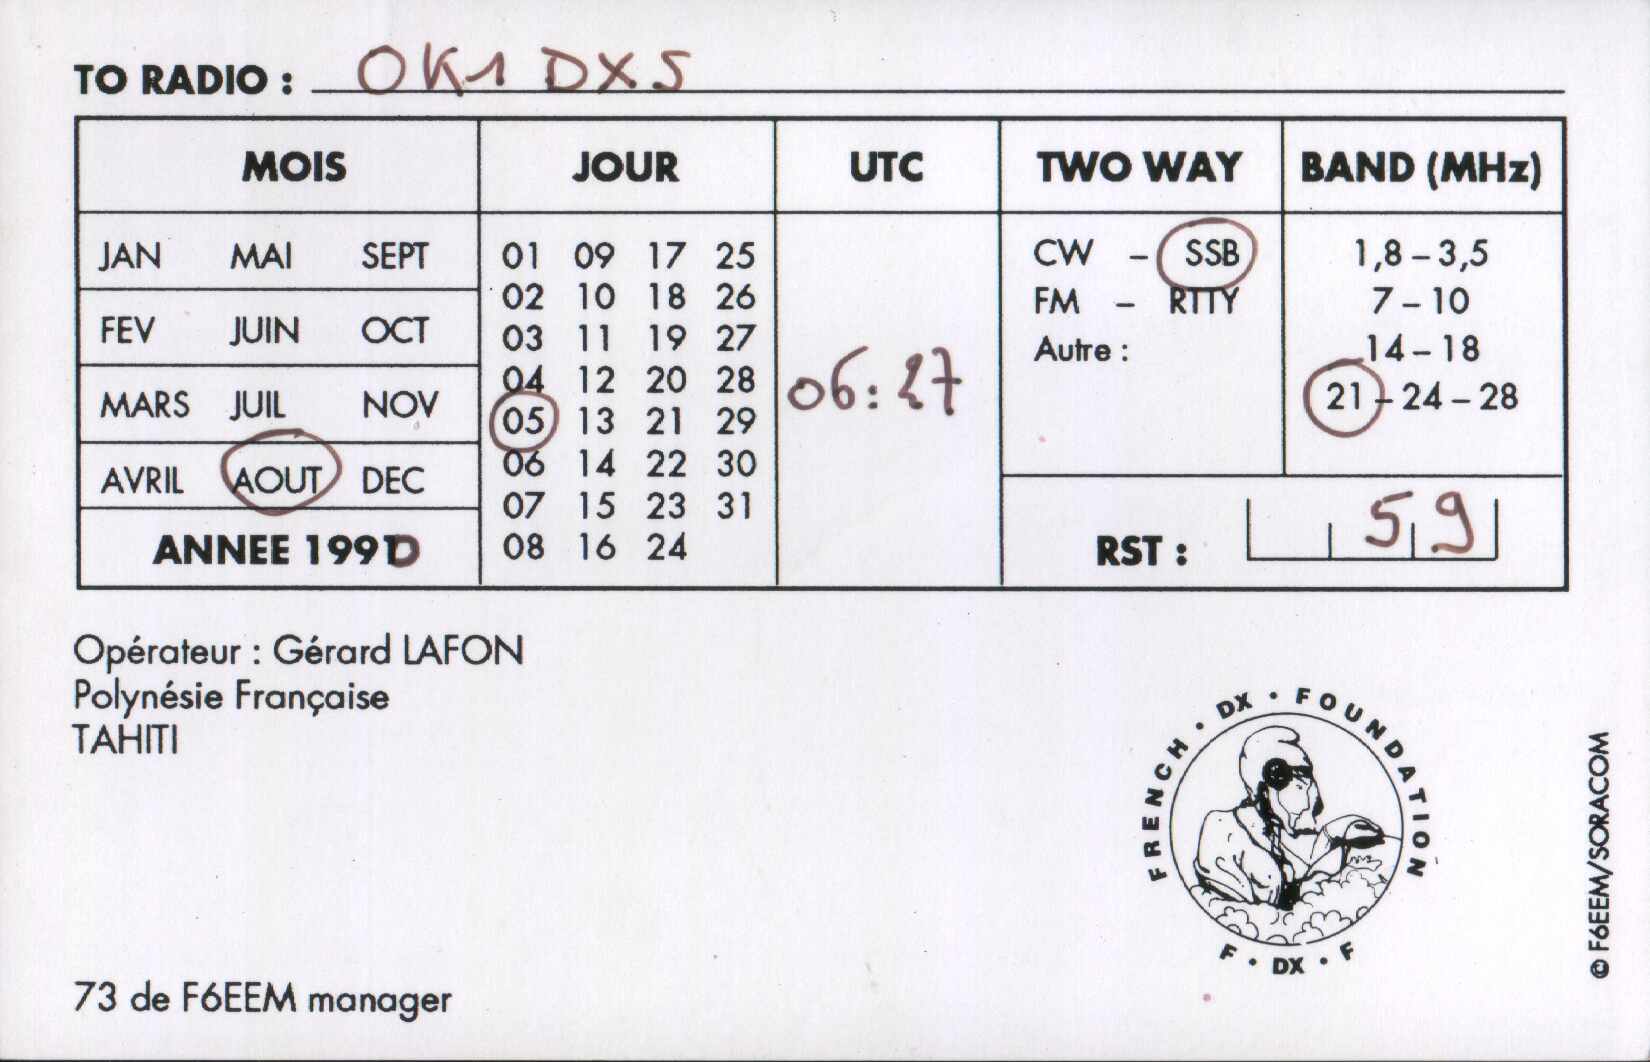 TO RADIO : OK1 DXS
MOIS JOUR UTC TWO WAY BAND (MHz)
JAN MAI SEPT
FEV JUIN OCT
MARS JUIL NOV
AVRIL AOUT DEC
ANNEE 1990
01 09 17 25
02 10 18 26
03 11 19 27
04 12 20 28
05 13 21 29
06 14 22 30
07 15 23 31
08 16 24
06:27
CW – SSB
FM – RTTY
Autre :
1,8 – 3,5
7 – 10
14 – 18
21 – 24 – 28
RST : 59
Opérateur : Gérard LAFON
Polynésie Française
TAHITI
FRENCH · DX · FOUNDATION
F · DX · F
© F6EEM/SORACOM
73 de F6EEM manager